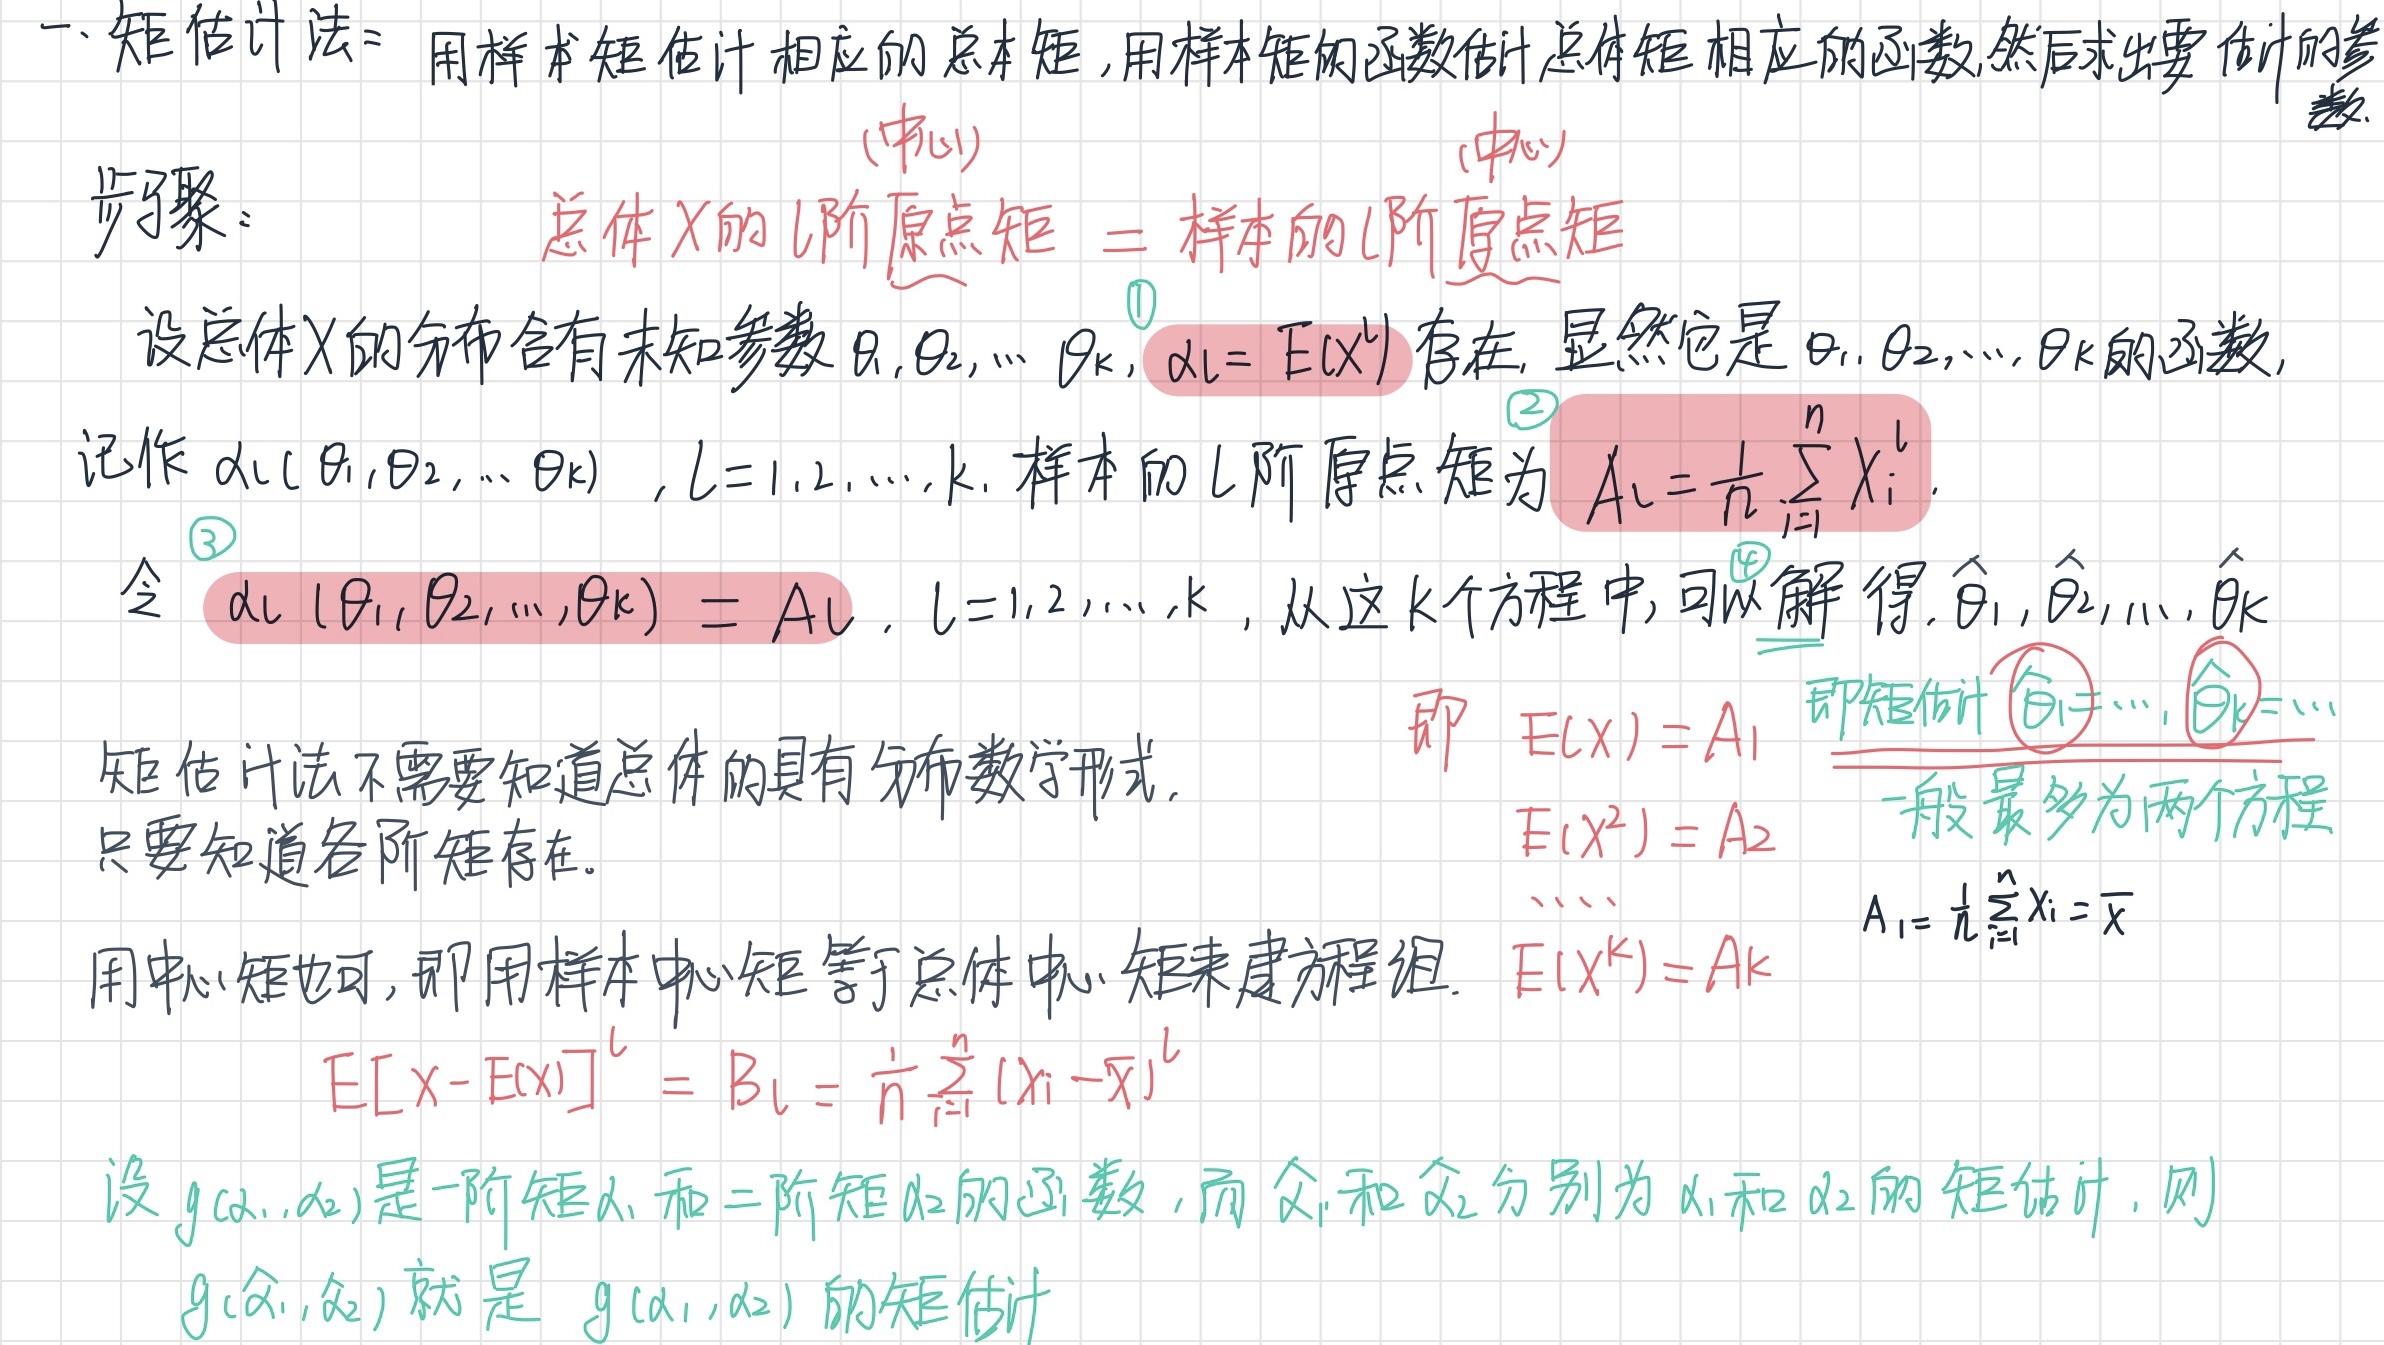 一、矩估计法= 用样本矩估计相应的总本矩,用样本矩的函数估计总体矩相应的函数,然后求出要估计的参
数.
(中心) (中心)
步骤: 总体X的l阶原点矩 = 样本的l阶原点矩
设总体X的分布含有未知参数θ₁,θ₂,…θk, ① αl=E(Xˡ)存在,显然它是θ₁,θ₂,…,θk的函数,
记作 αl(θ₁,θ₂,…θk),l=1,2,…,k.样本的l阶原点矩为 ② Al=1/n ∑ⁿᵢ₌₁ Xᵢˡ.
令 ③ αl(θ₁,θ₂,…,θk)=Al,l=1,2,…,k,从这k个方程中,可以④解得.θ̂₁,θ̂₂,…,θ̂k
即矩估计 θ̂₁=…,θ̂k=…
即 E(X)=A₁
一般最多为两个方程
矩估计法不需要知道总体的具有分布数学形式.
只要知道各阶矩存在。
E(X²)=A₂
····
A₁=1/n ∑ⁿᵢ₌₁ Xᵢ=X̄
用中心矩也可,即用样本中心矩等于总体中心矩来建方程组.
E(Xᵏ)=Ak
E[X-E(X)]ˡ = Bl = 1/n ∑ⁿᵢ₌₁ (Xᵢ-X̄)ˡ
设 g(α₁,α₂)是一阶矩α₁和二阶矩α₂的函数,而 α̂₁和α̂₂分别为α₁和α₂的矩估计,则
g(α̂₁,α̂₂)就是 g(α₁,α₂)的矩估计